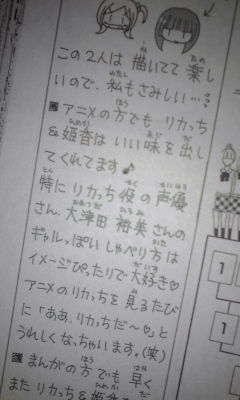 この2人は描いてて楽し
いので、私もさみしい…
アニメの方でも リカっち
&姫香は いい味を出し
てくれてます♪
特に リカっち役の声優
さん、大津田 裕美さんの
ギャルっぽい しゃべり方は
イメージぴったりで大好き♡
アニメのリカっちを見るたび
に「ああ、リカっちだ〜♡」と
うれしくなっちゃいます。(笑)
まんがの方でも 早く
また リカっち&姫香
1
1